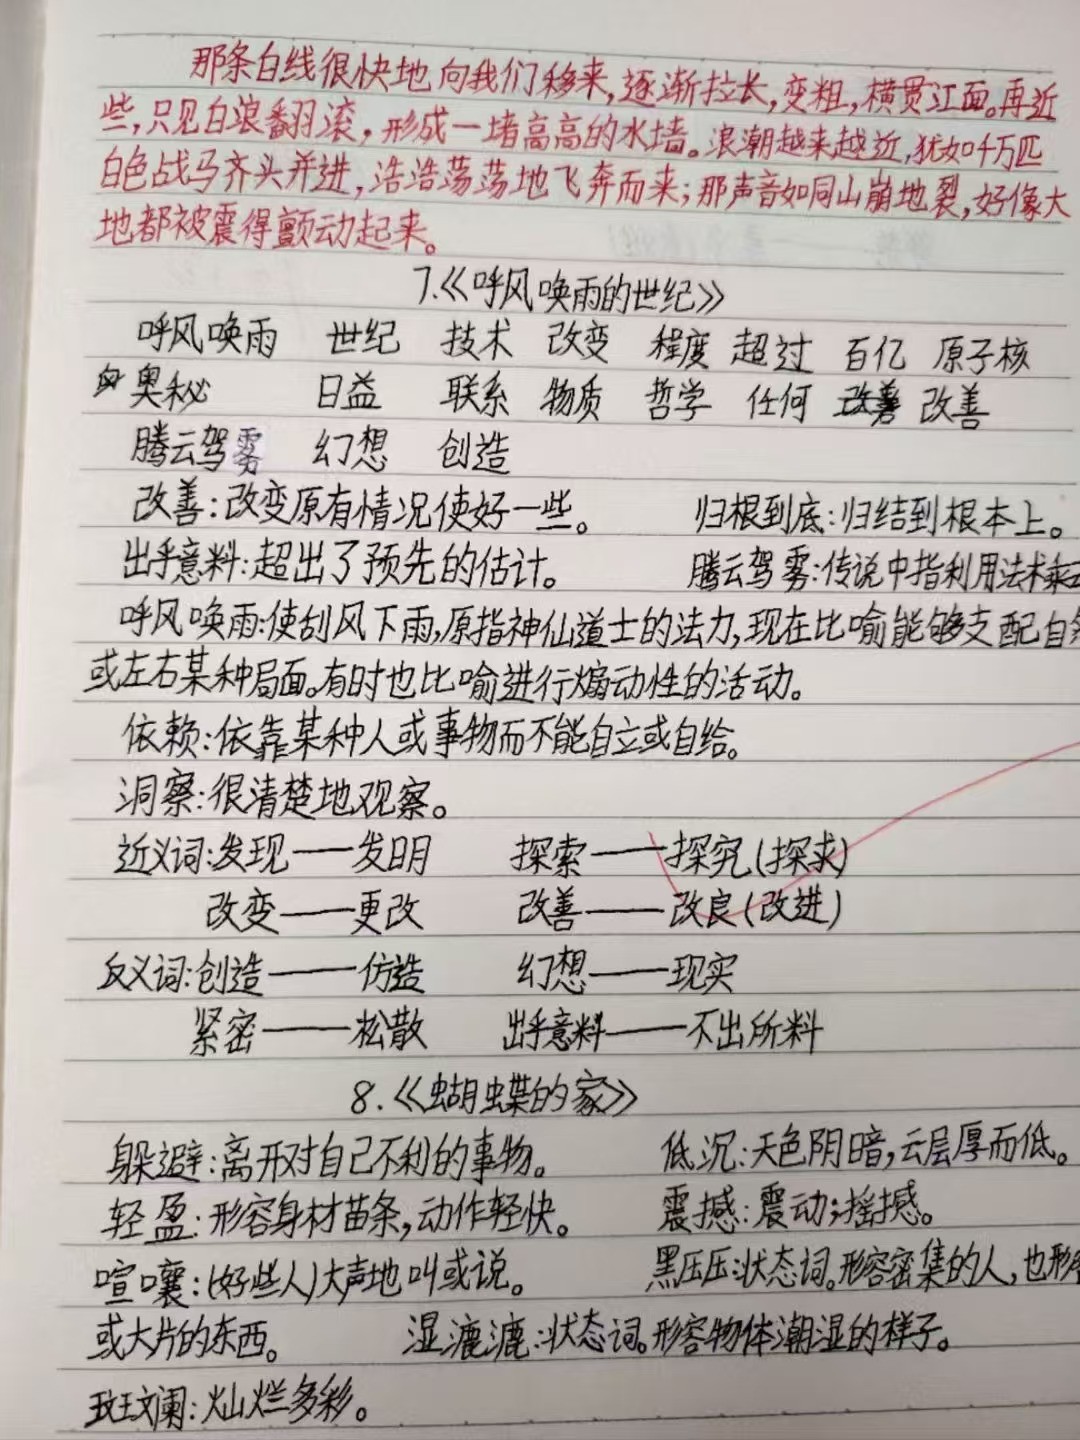 那条白线很快地向我们移来,逐渐拉长,变粗,横贯江面。再近
些,只见白浪翻滚,形成一堵高高的水墙。浪潮越来越近,犹如千万匹
白色战马齐头并进,浩浩荡荡地飞奔而来;那声音如同山崩地裂,好像大
地都被震得颤动起来。
7.《呼风唤雨的世纪》
呼风唤雨 世纪 技术 改变 程度 超过 百亿 原子核
奥秘 日益 联系 物质 哲学 任何 改善 改善
腾云驾雾 幻想 创造
改善:改变原有情况使好一些。 归根到底:归结到根本上。
出乎意料:超出了预先的估计。 腾云驾雾:传说中指利用法术乘云
呼风唤雨:使刮风下雨,原指神仙道士的法力,现在比喻能够支配自然
或左右某种局面。有时也比喻进行煽动性的活动。
依赖:依靠某种人或事物而不能自立或自给。
洞察:很清楚地观察。
近义词:发现——发明 探索——探究(探求)
改变——更改 改善——改良(改进)
反义词:创造——仿造 幻想——现实
紧密——松散 出乎意料——不出所料
8.《蝴蝶的家》
躲避:离开对自己不利的事物。 低沉:天色阴暗,云层厚而低。
轻盈:形容身材苗条,动作轻快。 震撼:震动;摇撼。
喧嚷:(好些人)大声地叫或说。 黑压压:状态词。形容密集的人,也形容
或大片的东西。 湿漉漉:状态词。形容物体潮湿的样子。
斑斓:灿烂多彩。